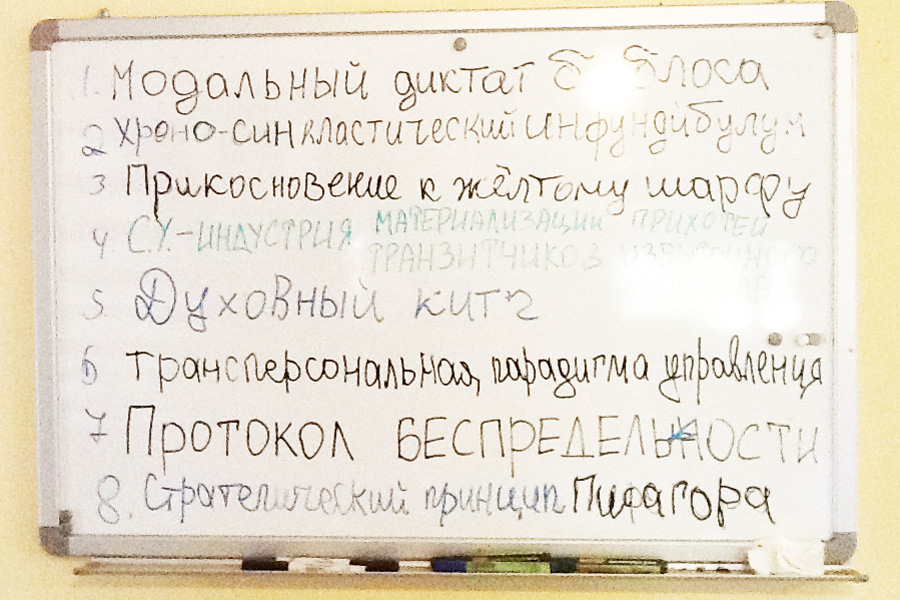 1. Модальный диктат
2 Хроно-синкластический инфундибулум
3 Прикосновение к жёлтому шарфу
4 С.У.-ИНДУСТРИЯ МАТЕРИАЛИЗАЦИИ ПРИХОТЕЙ
ТРАНЗИТЧИКОВ ИЗБЫТОЧНОГО
5. Духовный китч
6 Трансперсональная парадигма управления
7 Протокол БЕСПРЕДЕЛЬНОСТИ
8. Стратегический принцип Пифагора